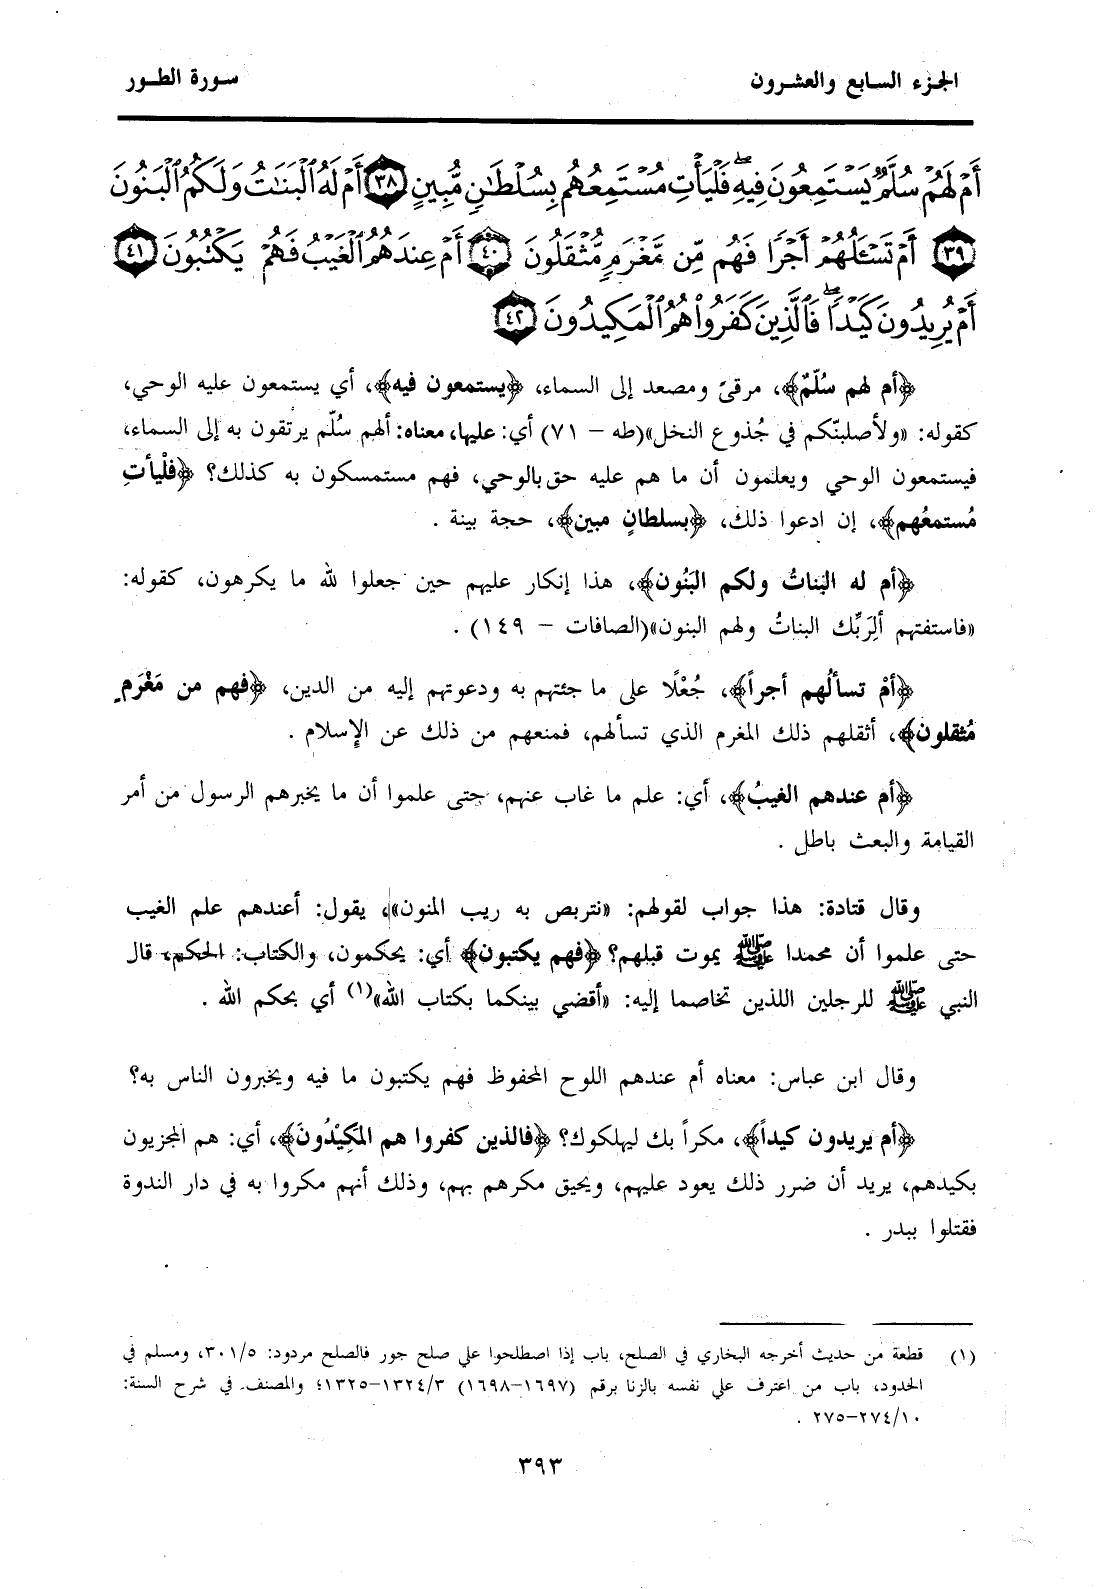 الجزء السابع والعشرون
سورة الطور
أَمْ لَهُمْ سُلَّمٌ يَسْتَمِعُونَ فِيهِ فَلْيَأْتِ مُسْتَمِعُهُم بِسُلْطَانٍ مُّبِينٍ ﴿٣٨﴾ أَمْ لَهُ الْبَنَاتُ وَلَكُمُ الْبَنُونَ
﴿٣٩﴾ أَمْ تَسْـَٔلُهُمْ أَجْرًا فَهُم مِّن مَّغْرَمٍ مُّثْقَلُونَ ﴿٤٠﴾ أَمْ عِندَهُمُ الْغَيْبُ فَهُمْ يَكْتُبُونَ ﴿٤١﴾
أَمْ يُرِيدُونَ كَيْدًا فَالَّذِينَ كَفَرُوا هُمُ الْمَكِيدُونَ ﴿٤٢﴾
﴿أم لهم سُلّمٌ﴾، مرقىً ومصعد إلى السماء، ﴿يستمعون فيه﴾، أي يستمعون عليه الوحي،
كقوله: «ولأصلبنّكم في جُذوع النخل»(طه - ٧١) أي: عليها، معناه: ألهم سُلّم يرتقون به إلى السماء،
فيستمعون الوحي ويعلمون أن ما هم عليه حق بالوحي، فهم مستمسكون به كذلك؟ ﴿فلْيأتِ
مُستمعُهم﴾، إن ادعوا ذلك، ﴿بسلطانٍ مبين﴾، حجة بينة .
﴿أم له البَناتُ ولكم البَنُون﴾، هذا إنكار عليهم حين جعلوا لله ما يكرهون، كقوله:
«فاستفتهم ألِرَبِّك البناتُ ولهم البنون»(الصافات - ١٤٩) .
﴿أمْ تسألُهم أجراً﴾، جُعْلًا على ما جئتهم به ودعوتهم إليه من الدين، ﴿فهم من مَغْرَمٍ
مُثقلون﴾، أثقلهم ذلك المغرم الذي تسألهم، فمنعهم من ذلك عن الإسلام .
﴿أم عندهم الغيبُ﴾، أي: علم ما غاب عنهم، حتى علموا أن ما يخبرهم الرسول من أمر
القيامة والبعث باطل .
وقال قتادة: هذا جواب لقولهم: «نتربص به ريب المنون»، يقول: أعندهم علم الغيب
حتى علموا أن محمدا ﷺ يموت قبلهم؟ ﴿فهم يكتبون﴾ أي: يحكمون، والكتاب: الحكم، قال
النبي ﷺ للرجلين اللذين تخاصما إليه: «أقضي بينكما بكتاب الله»(١) أي بحكم الله .
وقال ابن عباس: معناه أم عندهم اللوح المحفوظ فهم يكتبون ما فيه ويخبرون الناس به؟
﴿أم يريدون كيداً﴾، مكراً بك ليهلكوك؟ ﴿فالذين كفروا هم المَكِيْدُونَ﴾، أي: هم المجزيون
بكيدهم، يريد أن ضرر ذلك يعود عليهم، ويحيق مكرهم بهم، وذلك أنهم مكروا به في دار الندوة
فقتلوا ببدر .
(١) قطعة من حديث أخرجه البخاري في الصلح، باب إذا اصطلحوا علي صلح جور فالصلح مردود: ٣٠١/٥، ومسلم في
الحدود، باب من اعترف علي نفسه بالزنا برقم (١٦٩٧-١٦٩٨) ١٣٢٤/٣-١٣٢٥؛ والمصنف في شرح السنة:
٢٧٤/١٠-٢٧٥ .
٣٩٣